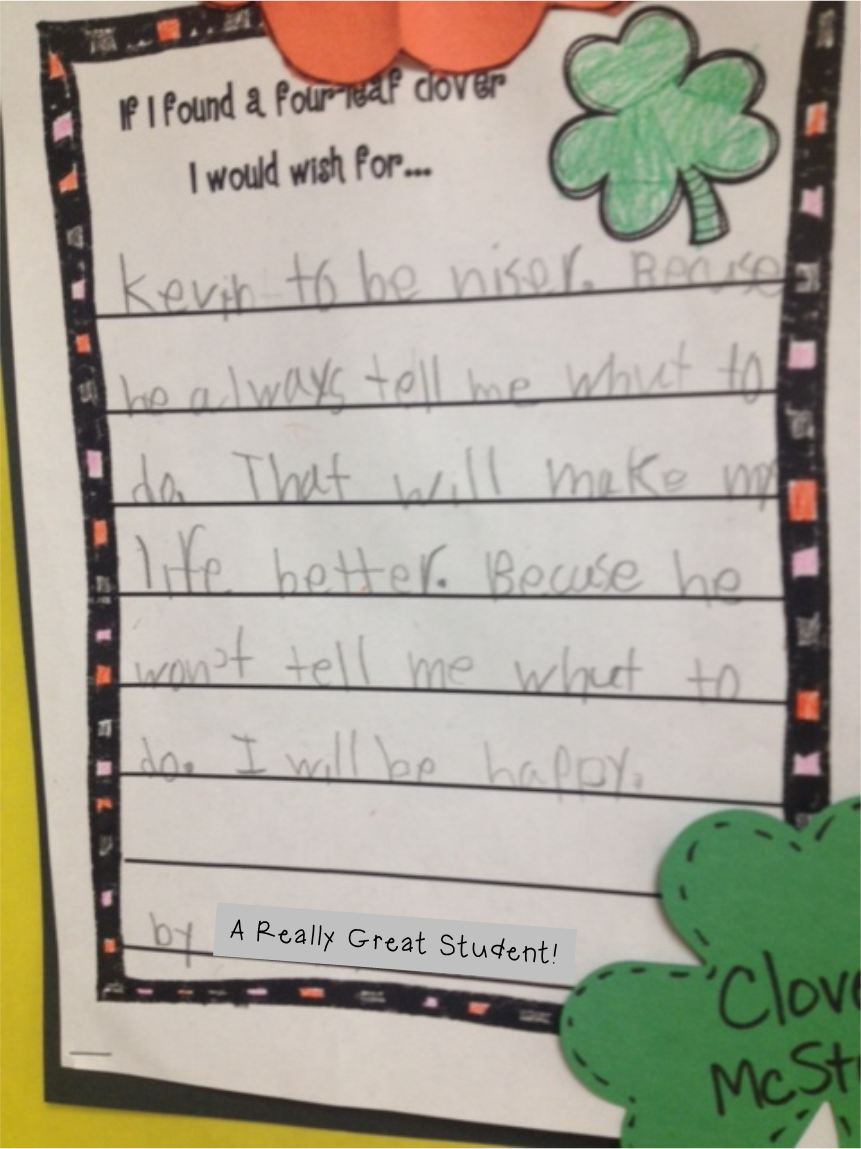 If I found a four-leaf clover
I would wish for...
Kevin to be niser. Becuse
he always tell me whut to
do. That will make my
life better. Becuse he
won't tell me whut to
do. I will be happy.
by A Really Great Student!
Clove
McSt